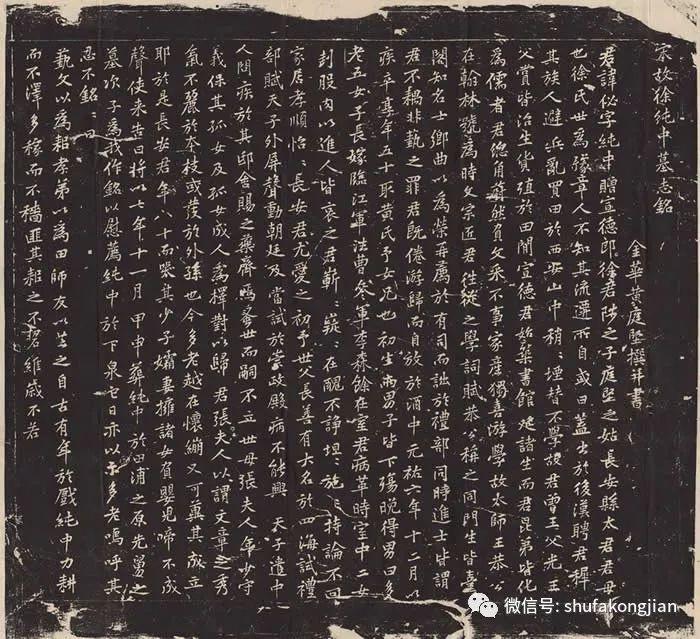 宋故徐純中墓志銘
金華黃庭堅撰并書
君諱佖字純中贈宣德郎徐君陟之子庭堅之姑長安縣太君君母
也徐氏世為豫章人不知其流遷所自或曰蓋出於後漢聘君穉
其族人避兵亂買田於西安山中稍〻堙替不學故君曾王父光王
父賞皆治生貨殖於田閒宣德君始築書館延諸生而君昆弟皆化
為儒者君傯角藉然負文采不事家產獨喜游學故太師王恭公
在翰林號為時文宗匠君往從之學詞賦恭公稱之同門生皆喜
閱知名士鄉曲以為榮再薦於有司而詘於禮部同時進士皆謂
君不耦非藝之罪君既倦游歸而自放於酒中元祐六年十二月以
疾卒享年五十取黃氏予女兄也初生兩男子皆下殤晚得男曰多
老五女子長嫁臨江軍法曹參軍李森餘在室君病革時室中二女
刲股肉以進人皆哀之君嶄〻在醜不諍坦〻施〻持論不回
家居孝順怡〻長安君尤愛之初予世父長善有大名於四海試禮
部賦天子外屏聲動朝廷及當試於崇政殿病不能興 天子遣中
人問疾於其邸舍賜之藥齊焉蚤世而嗣不立世母張夫人年少守
義保其孤女及孤女成人為擇對以歸君張夫人以謂文章之秀
氣不麗於本枝或發於外孫也今多老越在懷繃又可冀其成立
耶於是長安君年八十而哭其少子孀妻擁諸女負嬰兒啼不成
聲使来告曰將以七年十一月 甲申葬純中於田浦之原先舅之
墓次子為我作銘以慰薦純中於下泉它日亦以示多老嗚呼其
忍不銘〻曰
藝文以為耜孝弟以為田師友以芸之自古有年於戲純中力耕
而不澤多稼而不穡匪其耜之不君維歲不若
微信号: shufakongjian